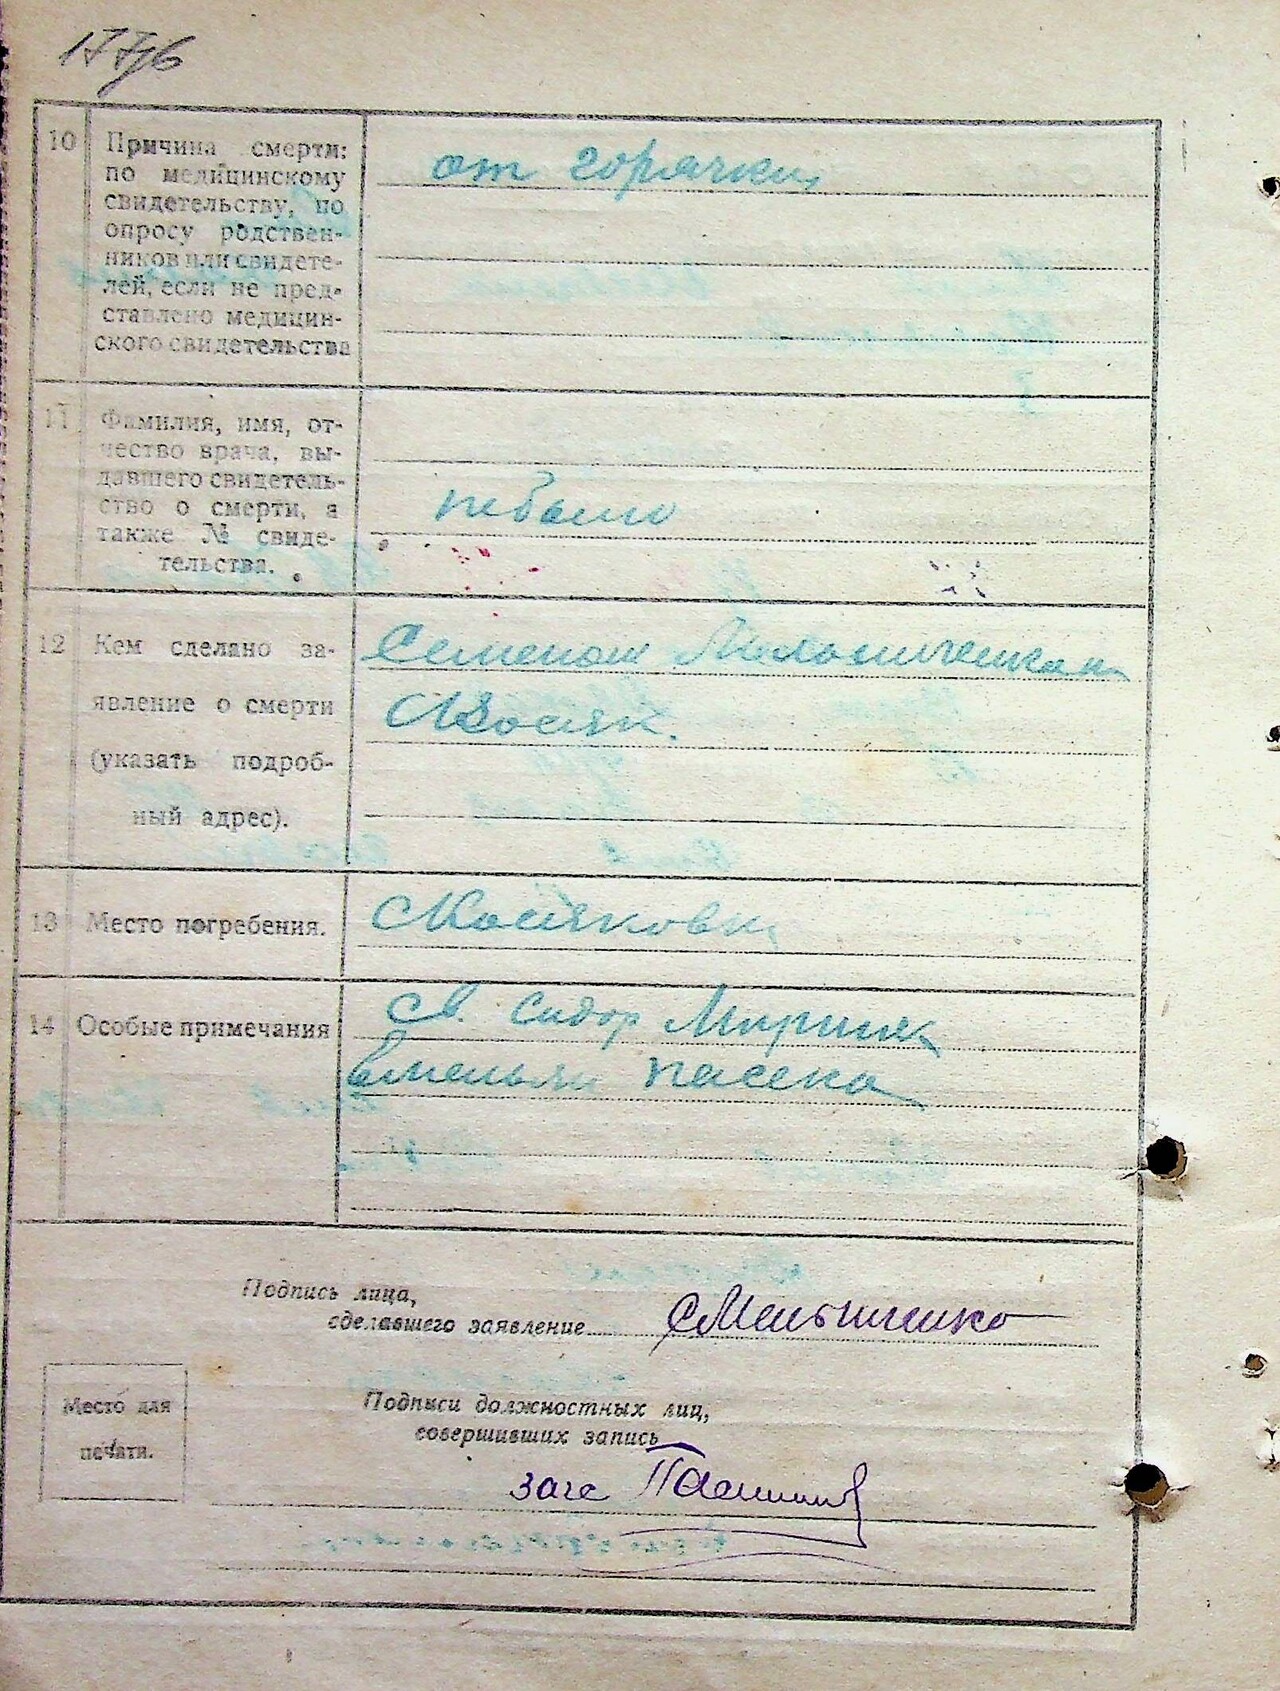 10 Причина смерти:
по медицинскому
свидетельству, по
опросу родствен-
ников или свидете-
лей, если не пред-
ставлено медицин-
ского свидетельства
от горячки
11 Фамилия, имя, от-
чество врача, вы-
давшего свидетель-
ство о смерти, а
также № свиде-
тельства.
небыло
12 Кем сделано за-
явление о смерти
(указать подроб-
ный адрес).
Семеном
13 Место погребения.
14 Особые примечания
св. Сидор
пасека
Подпись лица,
сделавшего заявление
Место для
печати.
Подписи должностных лиц,
совершивших запись